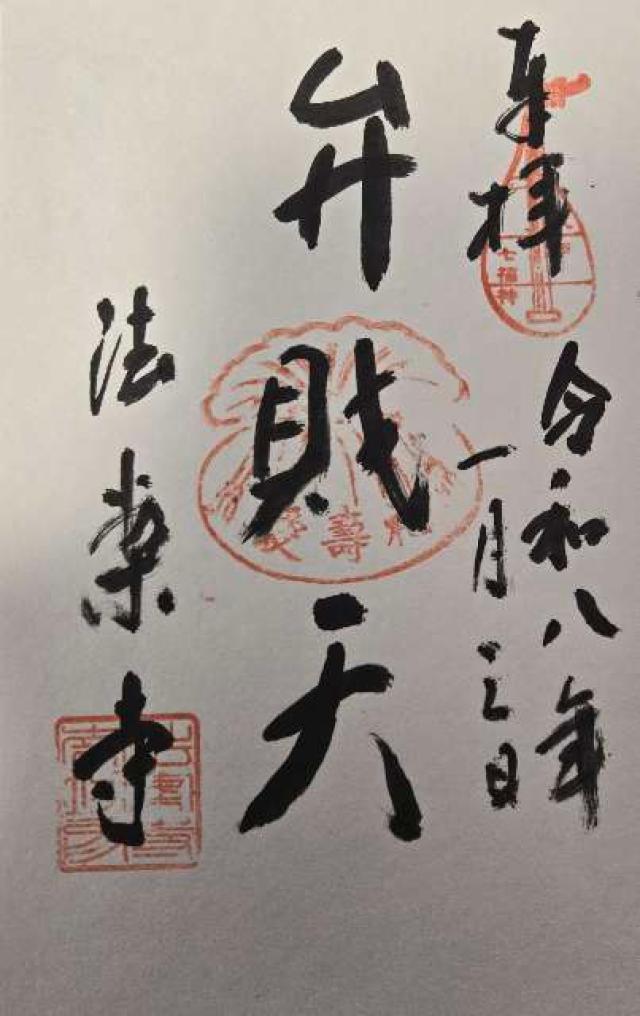 奉拝
七福神
令和八年
一月三日
弁財天
法案寺